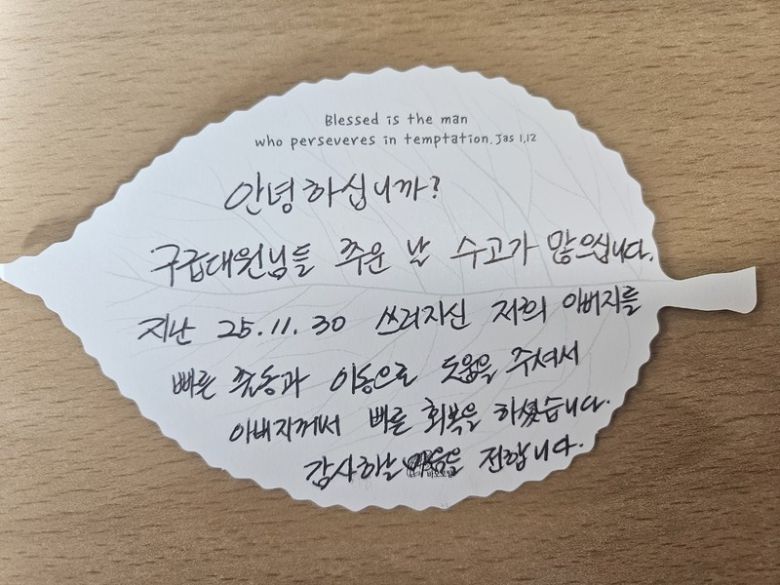 Blessed is the man
who perseveres in temptation. Jas 1.12
안녕하십니까?
구급대원님들 추운 날 수고가 많으십니다.
지난 25.11.30 쓰러지신 저희 아버지를
빠른 출동과 이동으로 도움을 주셔서
아버지께서 빠른 회복을 하셨습니다.
감사하는 마음을 전합니다.